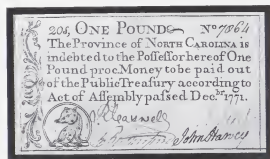 20s, ONE POUND No 7864
The Province of NORTH CAROLINA is
indebted to the Poſſeſſor hereof One
Pound proc. Money to be paid out
of the Public Treaſury according to
Act of Aſſembly paſſed Dec.br 1771.
Caswell
John Harvey